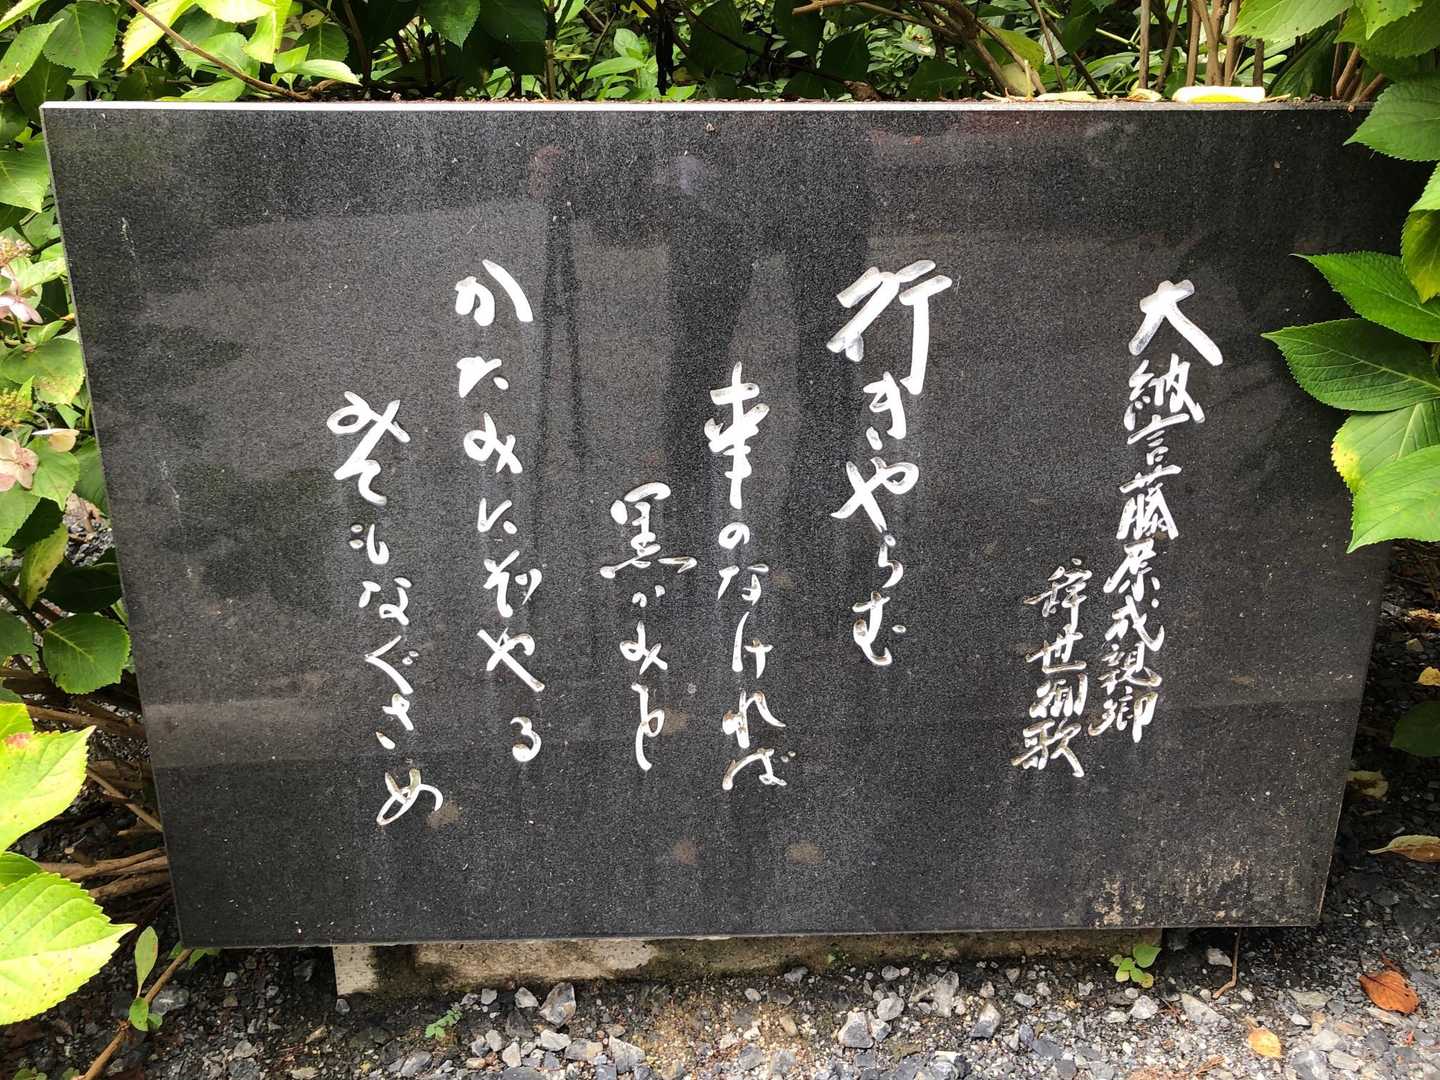 大納言藤原成親卿
辞世御歌
行きやらむ
事のなければ
黒かみを
かたみにぞやる
みてもなぐさめ